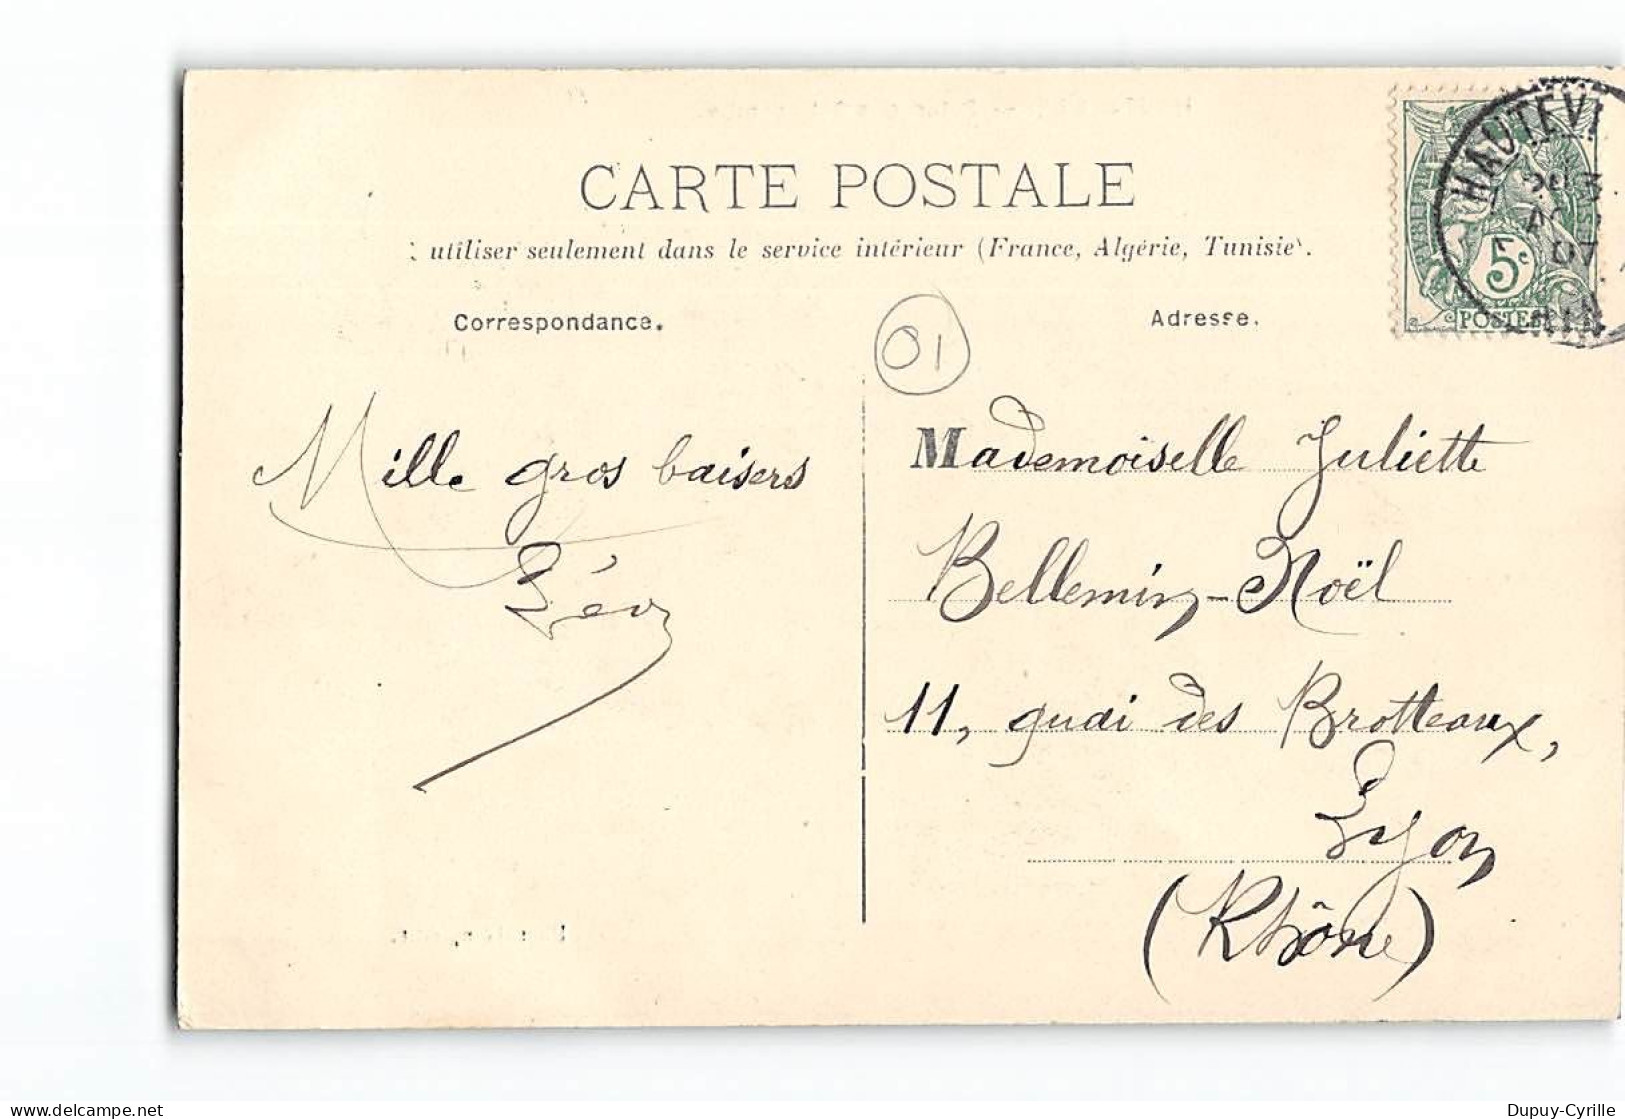 CARTE POSTALE
utiliser seulement dans le service intérieur (France, Algérie, Tunisie).
Correspondance.
Adresse.
HAUTEVI
07
AIN
5c
POSTES
01
Mille gros baisers
Léon
Mademoiselle Juliette
Bellemin-Noël
11, quai des Brotteaux,
Lyon
(Rhône)
delcampe.net
Dupuy-Cyrille